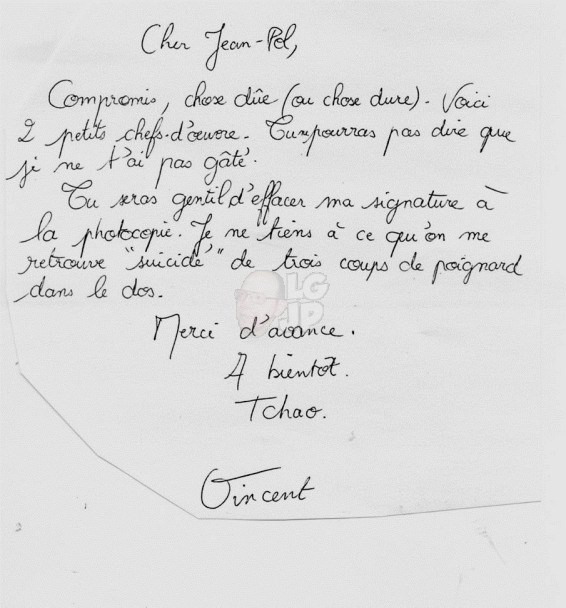 Cher Jean-Pol,
Compromis, chose dûe (ou chose dure). Voici
2 petits chefs-d'œuvre. Tu n pourras pas dire que
je ne t'ai pas gâté.
Tu seras gentil d'effacer ma signature à
la photocopie. Je ne tiens à ce qu'on me
retrouve "suicidé" de trois coups de poignard
dans le dos.
LG
JP
Merci d'avance.
A bientôt.
Tchao.
Vincent